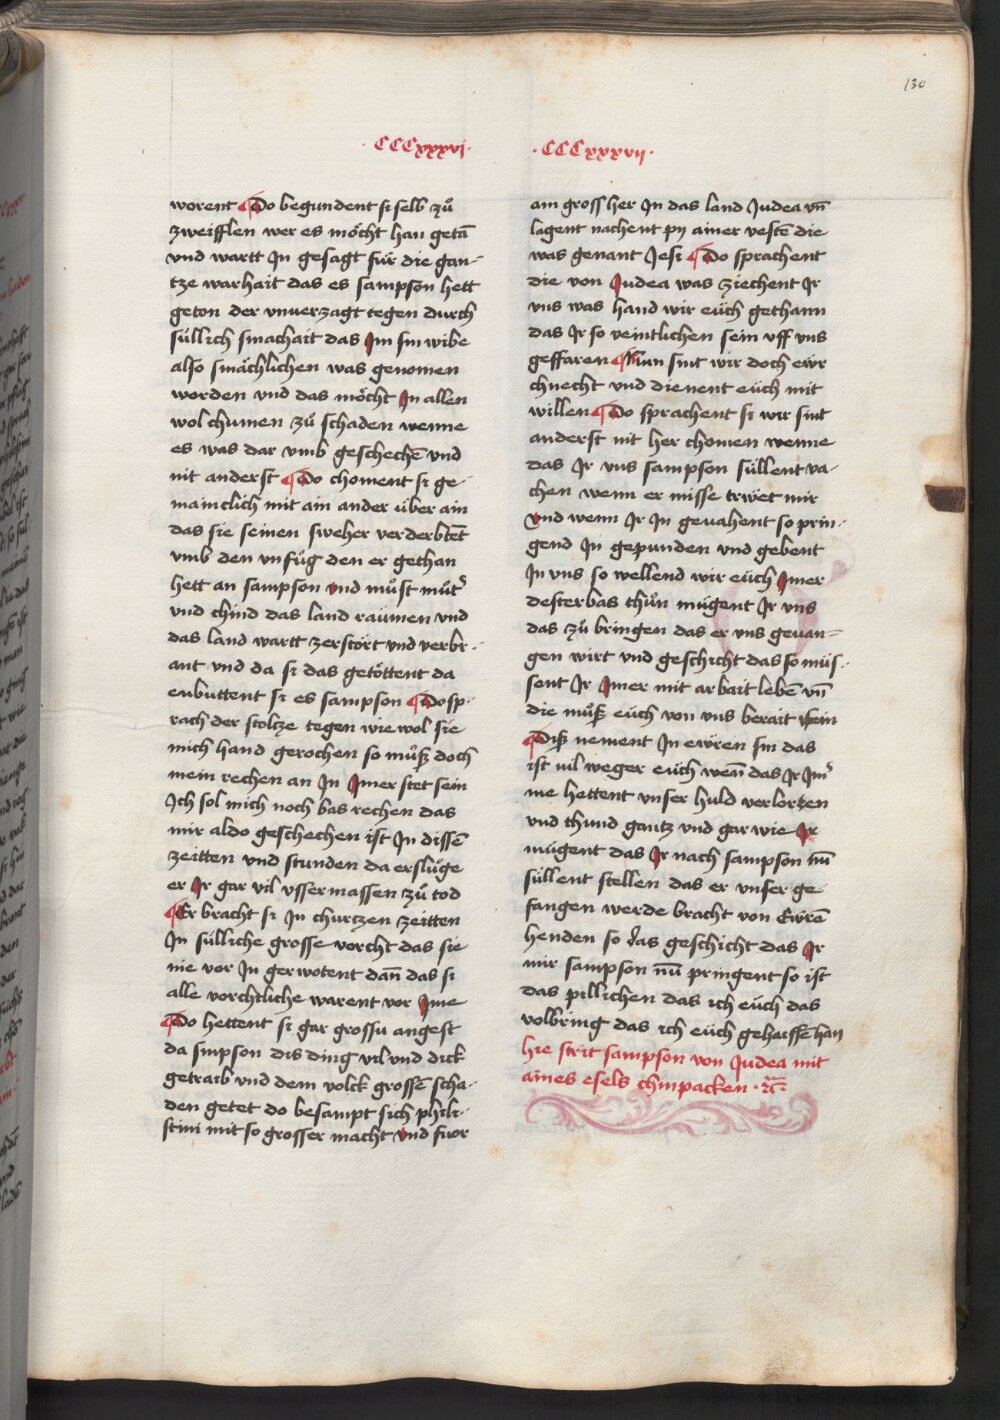 130
·CCCxxxvi·
worent ¶Do begundent si selb zů
zweifflen wer es möcht han getā
vnd wartt Jn gesagt für die gan-
tze warhait das es sampson hett
geton der vnuerzagt tegen durch
süllich smachait das Jm sin wibe
also smächlichen was genomen
worden vnd das möcht Jn allen
wol chumen zů schaden wenne
es was dar vmb geschechē vnd
nit anderst ¶Do choment si ge-
mainclich mit ain ander über ain
das sie seinen sweher verderbtēt
vmb den vnfůg den er gethan
hett an sampson vnd můst můt̛
vnd chind das land raümen vnd
das land wartt zerstört vnd verbr-
ant vnd da si das getöttent da
enbuttent si es sampson ¶Do sp-
rach der stoltze tegen wie wol sie
mich hand gerochen so můß doch
mein rechen an Jn Jmer stet sein
Jch sol mich noch bas rechen das
mir aldo geschechen ist Jn dissē
zeitten vnd stunden da erslüge
er Jr gar vil vssermassen zů tod
¶Er bracht si Jn churtzen zeitten
Jn sülliche grosse vorcht das sie
nie vor Jn gerwotent dañ das si
alle vorchtliche warent vor Jme
¶Do hettent si gar grossu angest
da smpson dis ding vil vnd dick
getraib vnd dem volck grossē scha-
den getet do besampt sich phili-
stini mit so grosser macht vnd fuor
·CCCxxxvii·
ain gross her Jn das land Judea vn̄
lagent nachent py ainer vestē die
was genant Jesi ¶Do sprachent
die von Judea was ziechent Jr
vns was hand wir eüch gethann
das Jr so veintlichen sein vff vns
geffaren ¶Nun sint wir doch ewr
chnecht vnd dienent eüch mit
willen ¶Do sprachent si wir sint
anderst nit her chomen wenne
das Jr vns sampson süllent va-
chen wenn er misse trwet mir
vnd wenn Jr Jn geuahent so prin-
gend Jn gepunden vnd gebent
Jn vns so wellend wir eüch Jmer
desterbas thůn mügent Jr vns
das zů bringen das er vns geuan-
gen wirt vnd geschicht das so müs-
sent Jr Jmer mit arbait lebē vn̄
die můß eüch von vns berait sein
¶Diß nement Jn ewren sin das
ist vil weger eüch weñ das Jr Jm̛
me hettent vnser huld verlortzen
vnd thund gantz vnd gar wie Jr
mügent das Jr nach sampson nū
süllent stellen das er vnser ge-
fangen werde bracht von Ewrē
henden so das geschicht das Jr
mir sampson nū pringent so ist
das pillichen das ich eüch das
volbring das ich eüch gehaisse han
hie strit sampson von Judea mit
aines esels chinpacken ·